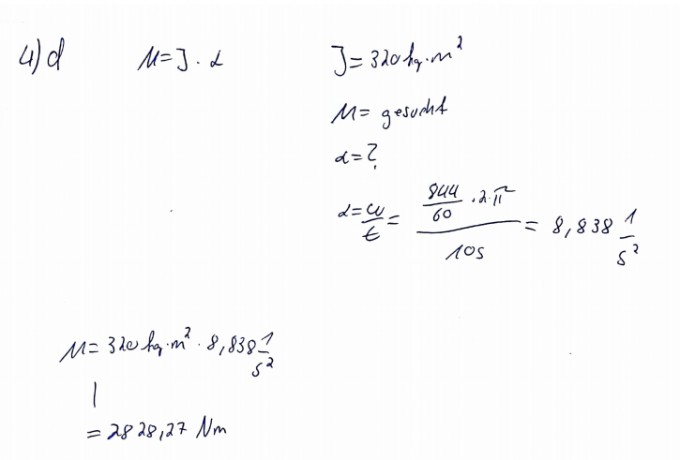 4)d M=J·α J=320kg·m²
M= gesucht
α=?
α=ω/t= (844/60 ·2·π)/10s = 8,838 1/s²
M= 320 kg·m² · 8,838 1/s²
= 2828,27 Nm